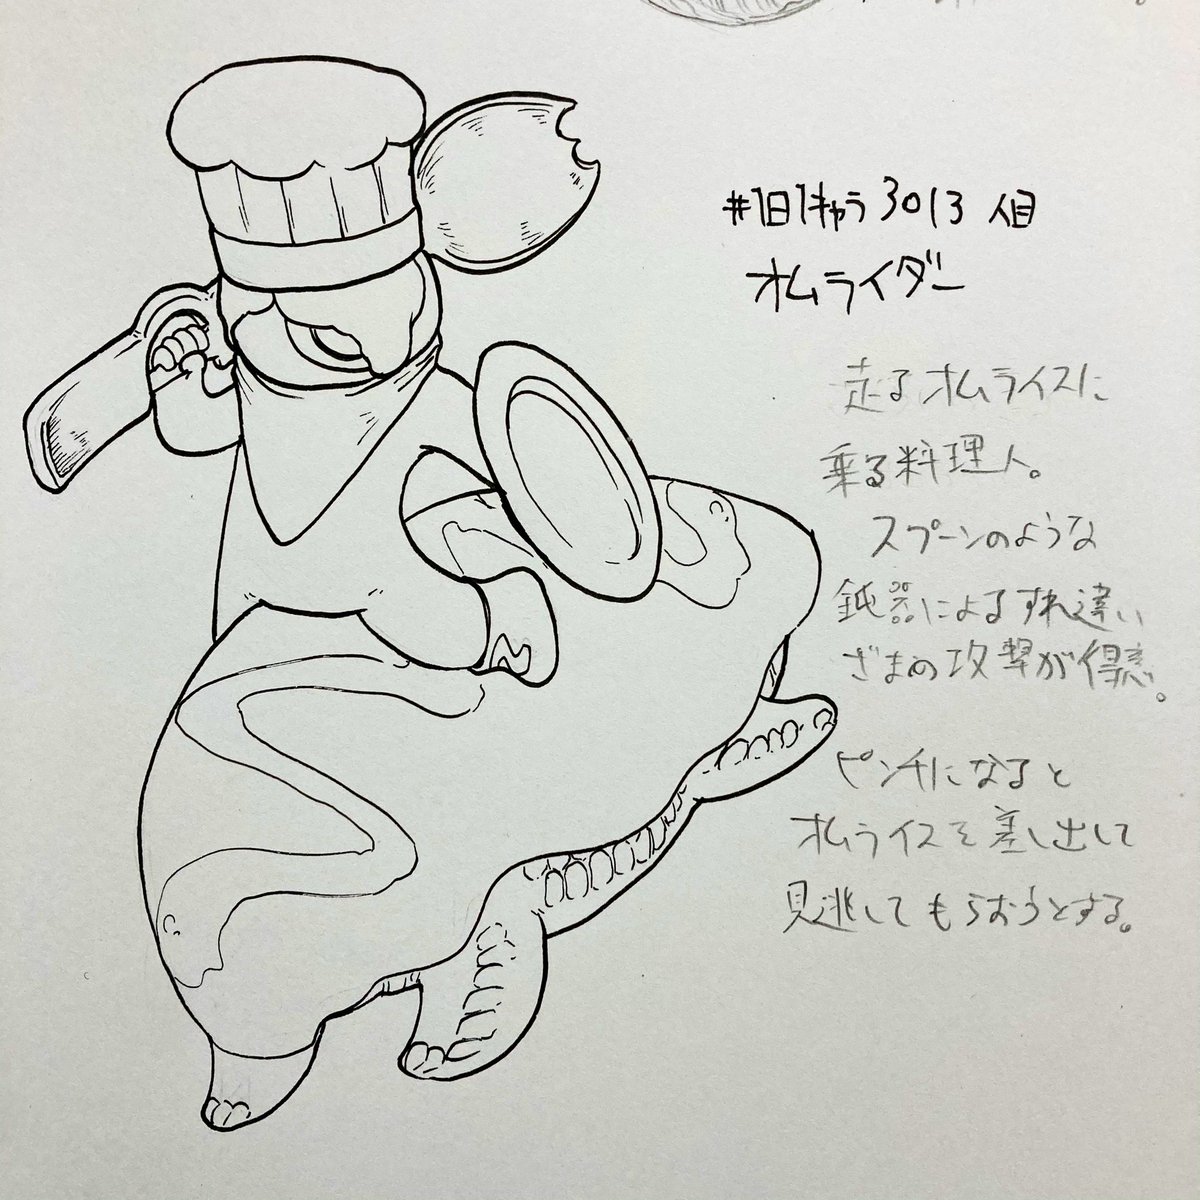 #1日1キャラ 3013 人目
オムライダー
走るオムライスに
乗る料理人。
スプーンのような
鈍器によるすれ違い
ざまの攻撃が得意。
ピンチになると
オムライスを差し出して
見逃してもらおうとする。